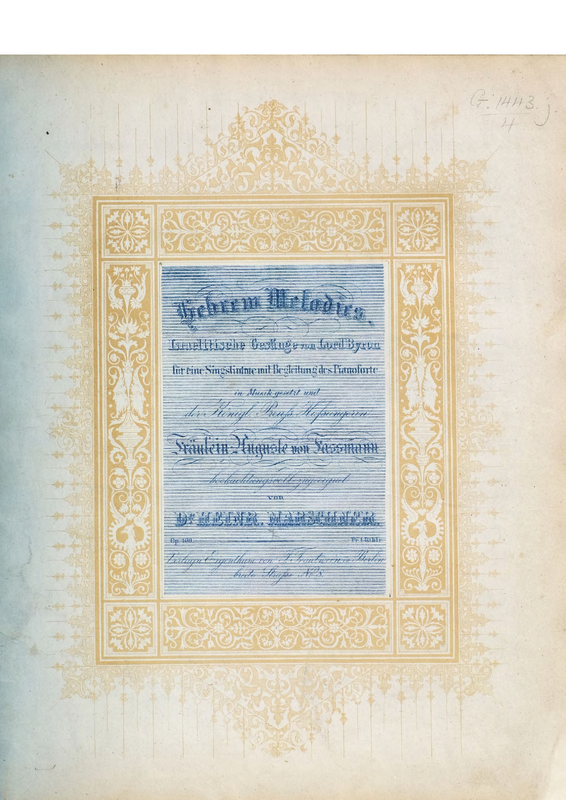 G. 1443. j.
4
Hebrew Melodies.
Israelitische Gesänge von Lord Byron
für eine Singstimme mit Begleitung des Pianoforte
in Musik gesetzt und
der Königl. Preuß. Hofsängerin
Fräulein Auguste von Fassmann
hochachtungsvoll zugeeignet
von
Dr. HEINR. MARSCHNER.
Op. 100. Pr. 1 Rthlr.
Eigenthum von T. Trautwein in Berlin
breite Straße No. 8